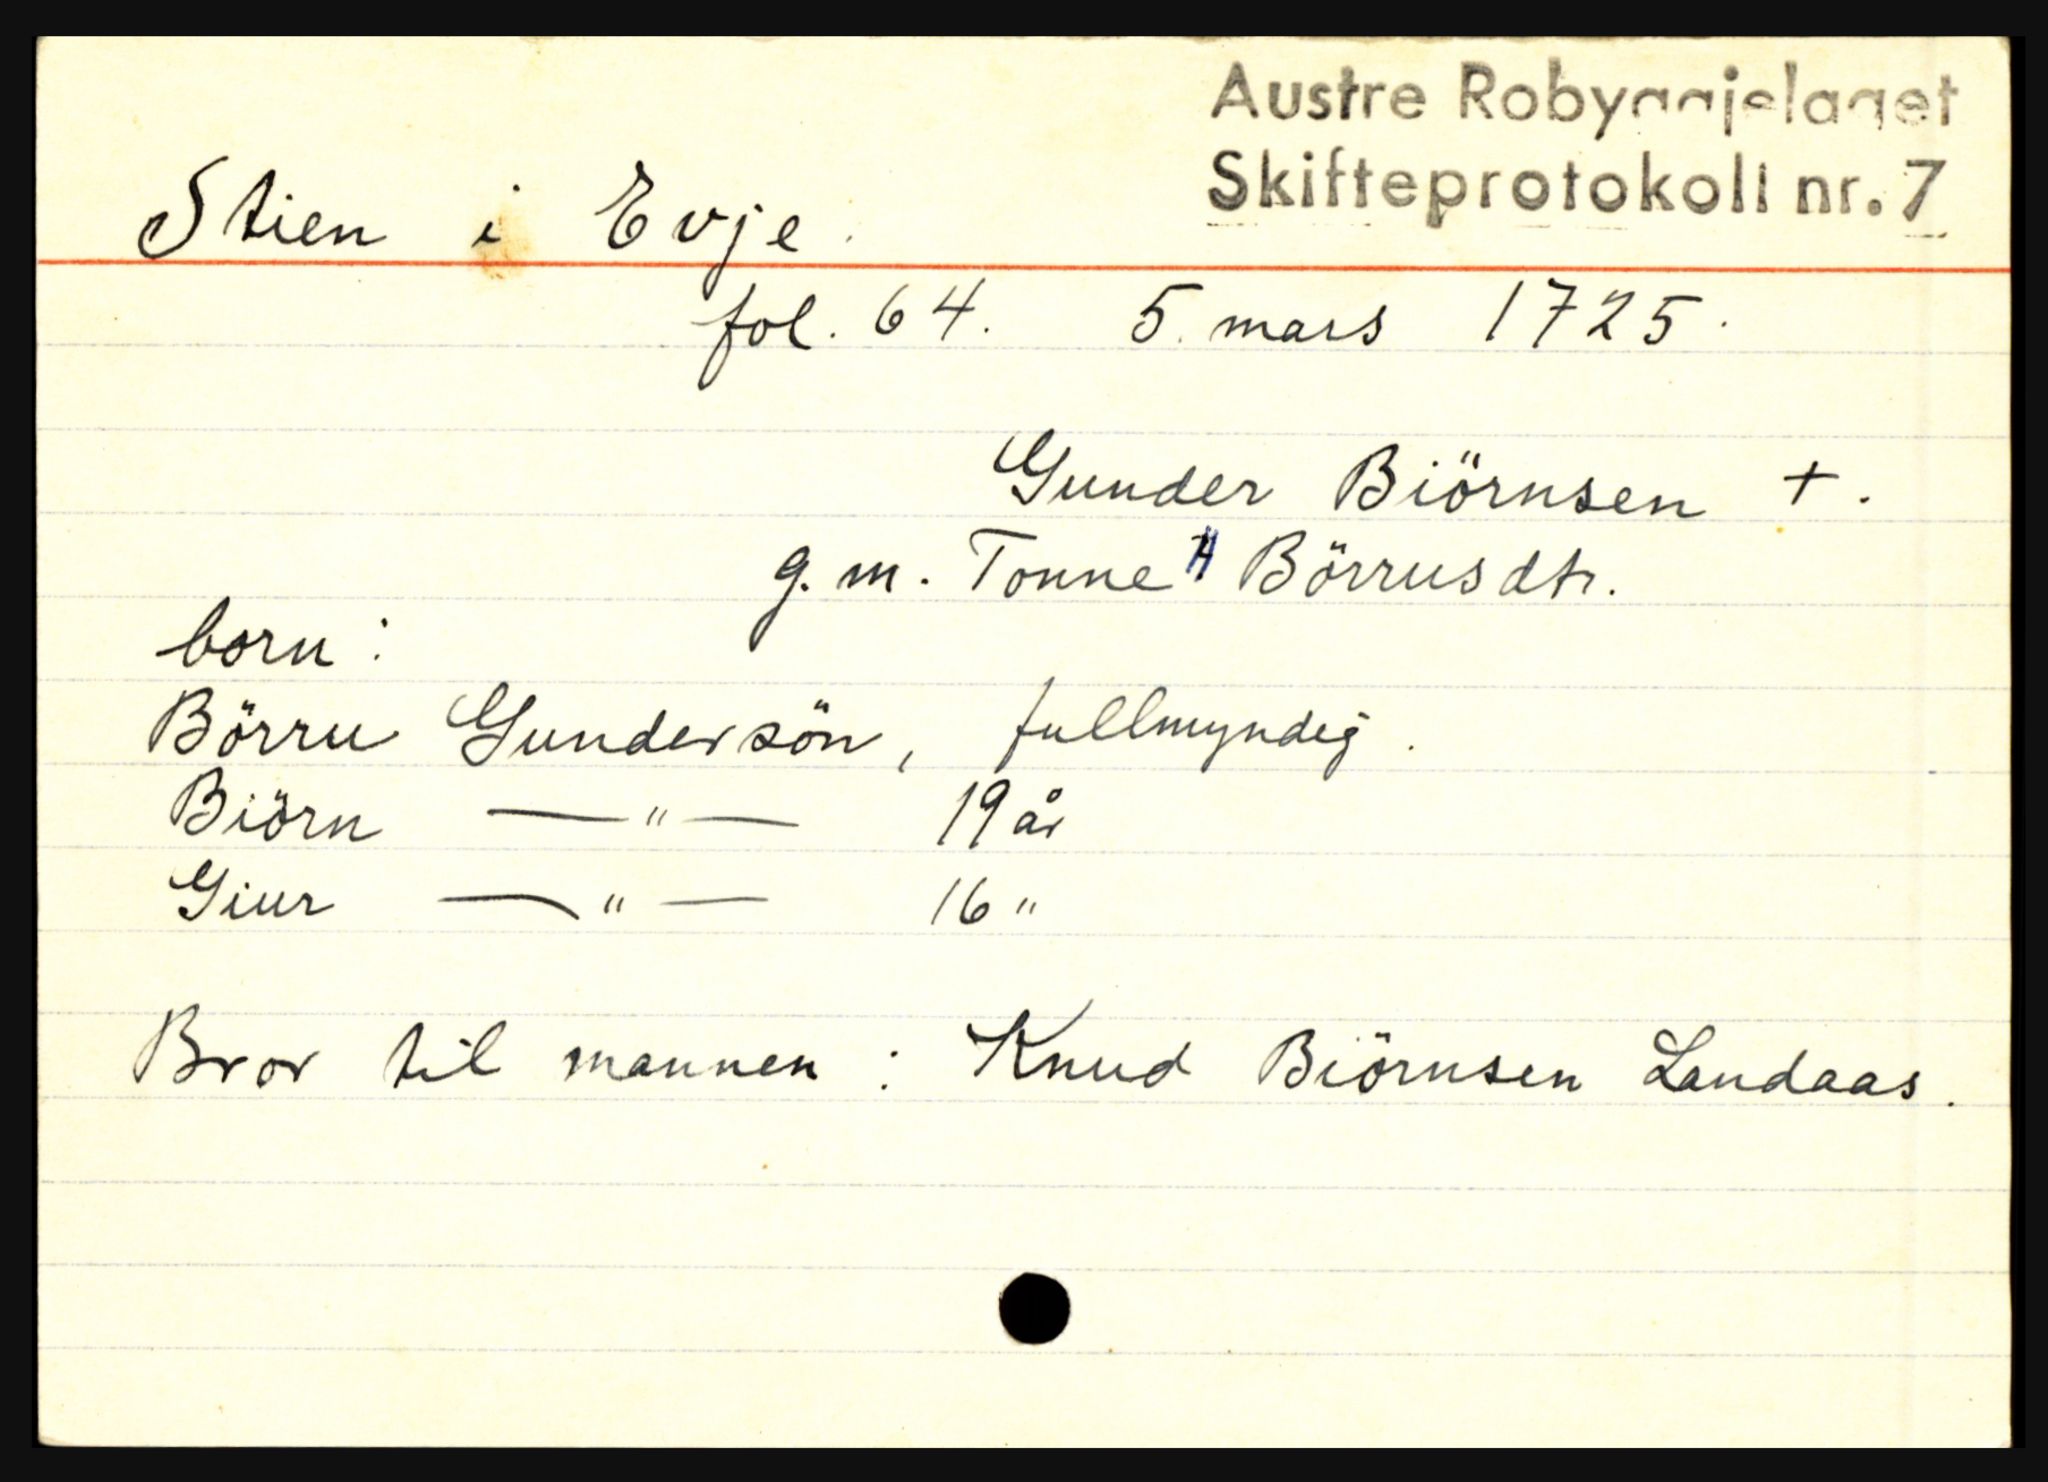 Austre Robyggjelaget
Skifteprotokoll nr. 7
Stien i Evje.
fol. 64. 5. mars 1725.
Gunder Biörnsen +.
g. m. Tonne H Börrusdtr.
born:
Börru Gundersön, fullmyndig.
Biörn —"— 19 år
Giur —"— 16 "
Bror til mannen: Knud Biörnsen Landaas.